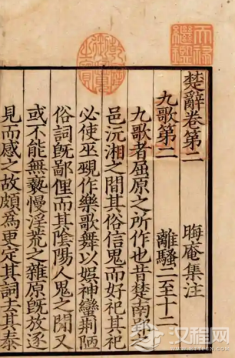 楚辭卷第二　晦庵集注
九歌第二　離騷二至十一
九歌者屈原之所作也昔楚南郢之
邑沅湘之間其俗信鬼而好祀其祀
必使巫覡作樂歌舞以娛神蠻荊陋
俗詞既鄙俚而其陰陽人鬼之間又
或不能無褻慢淫荒之雜原既放逐
見而感之故頗爲更定其詞去其泰
汉程网